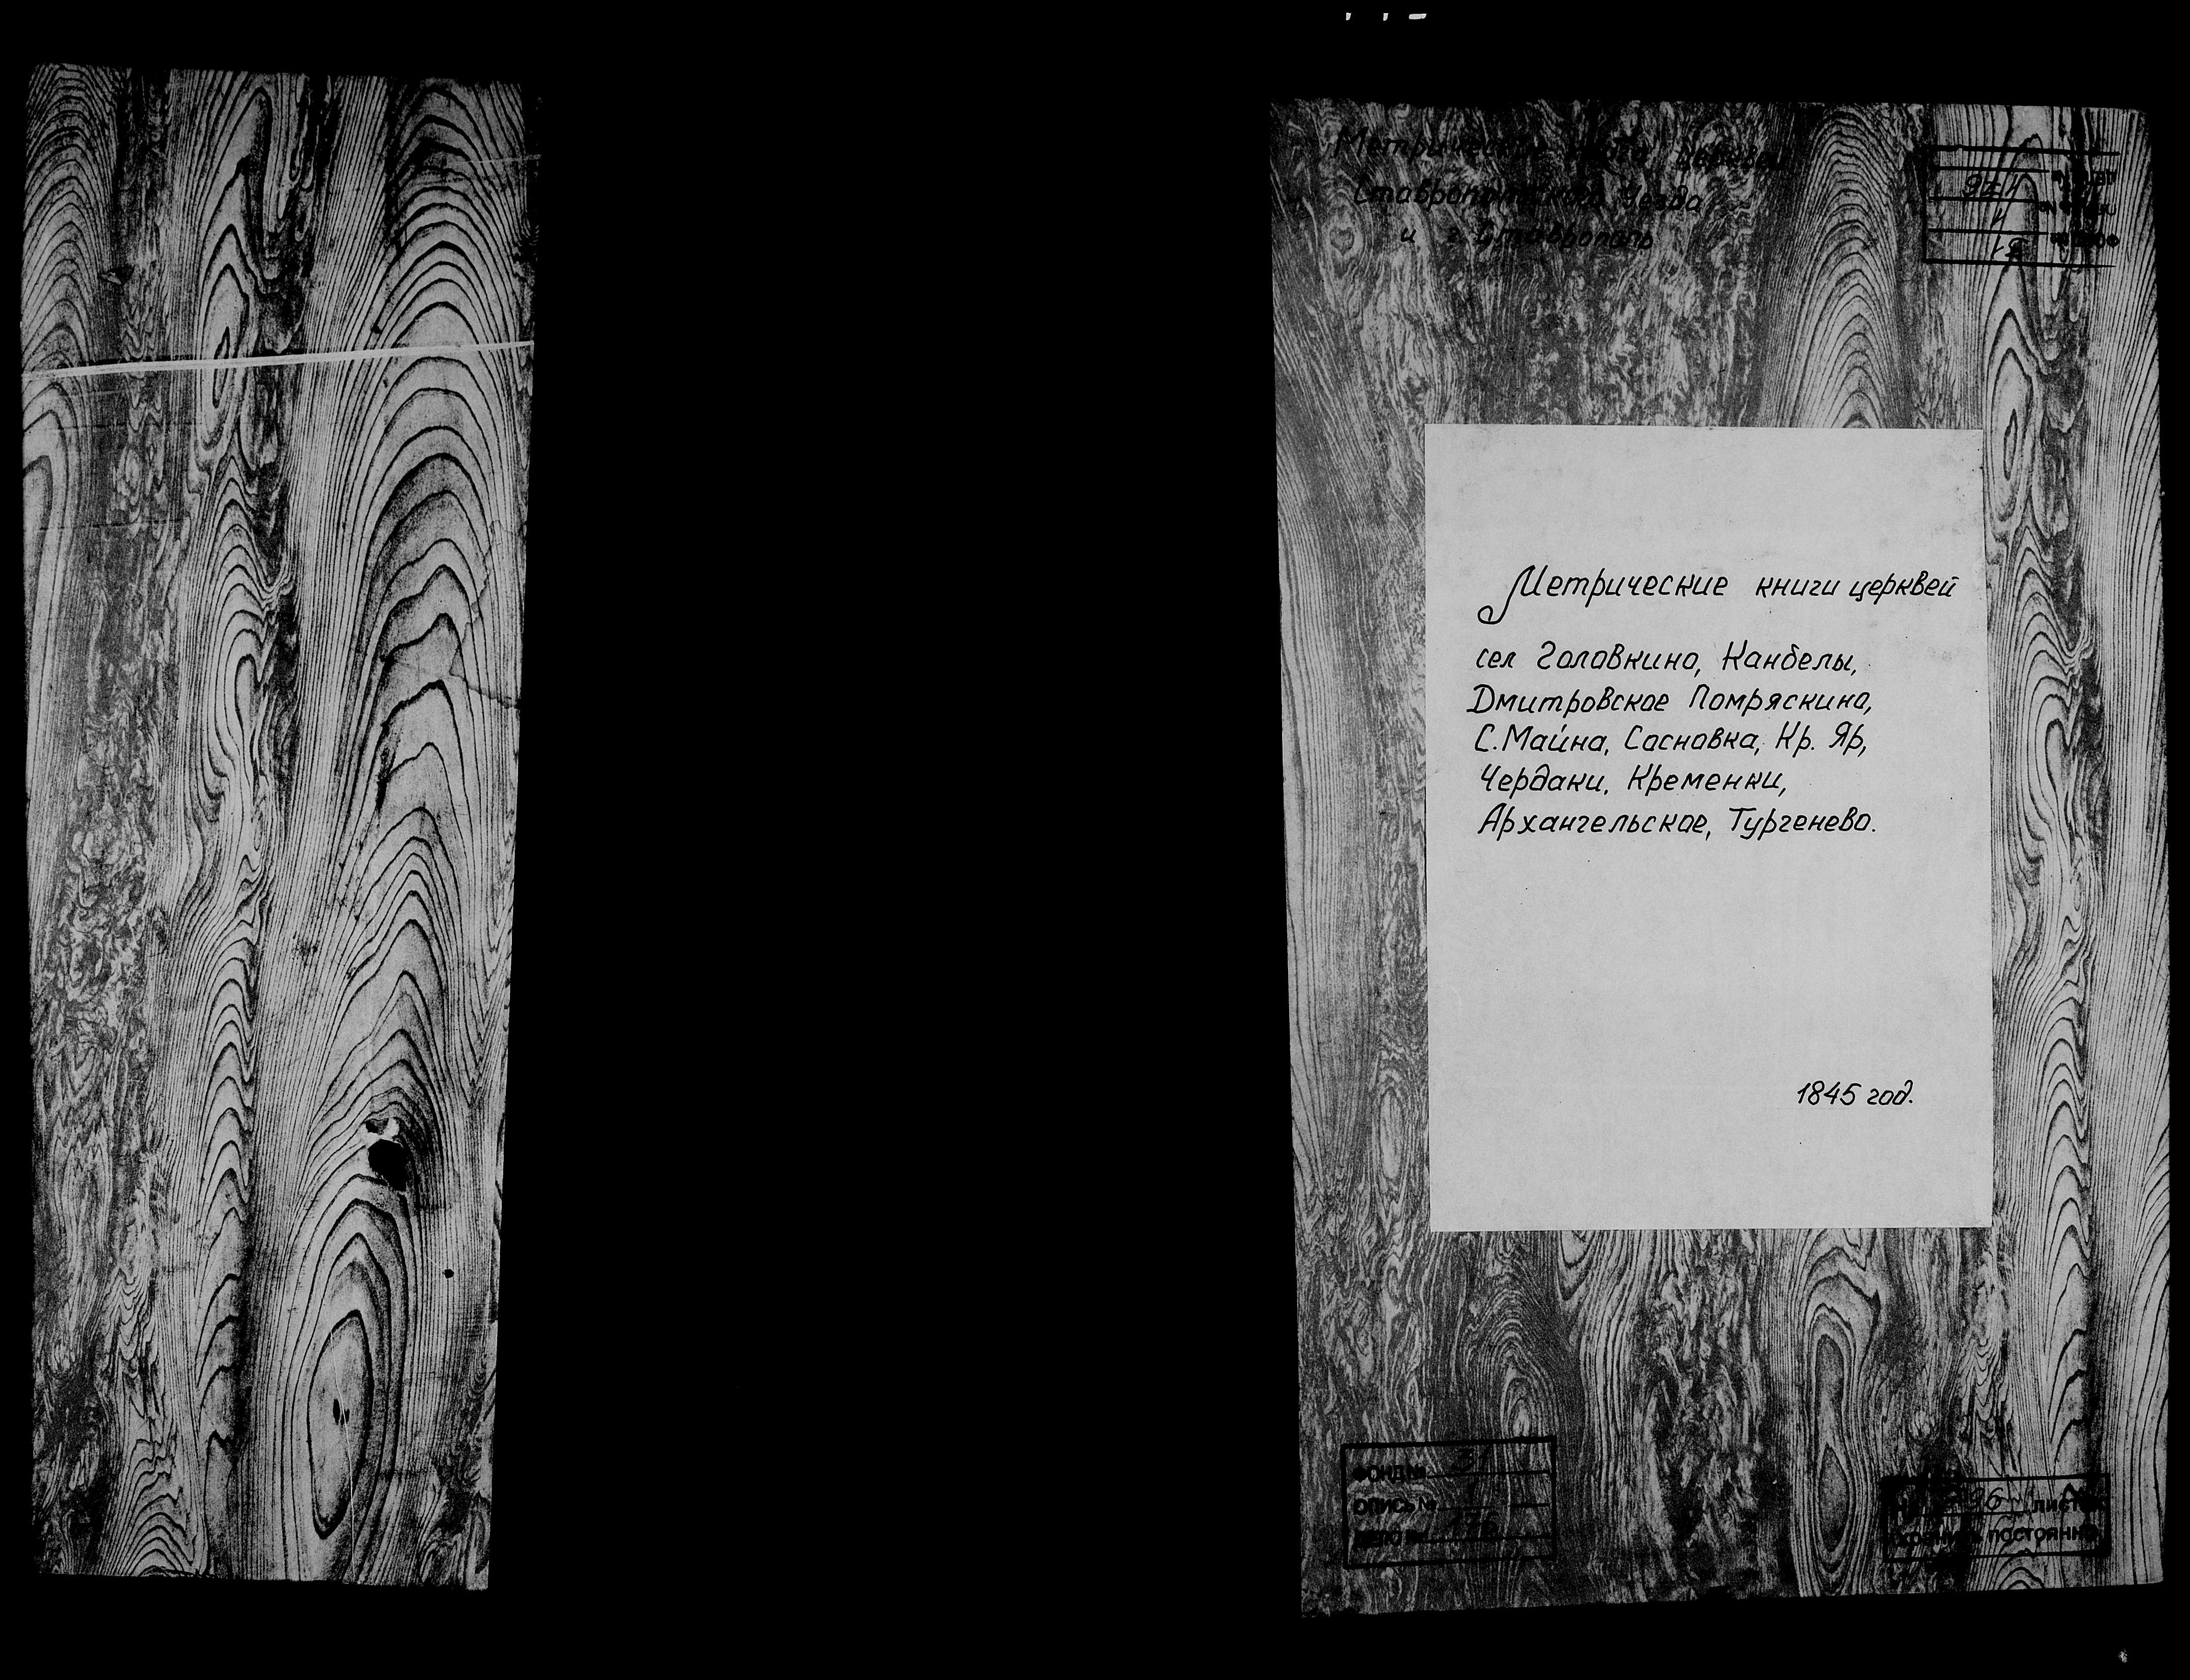 Метрические книги церквей
Ставропольского уезда
и г. Ставрополь
Метрические книги церквей
сел Головкино, Канбелы,
Дмитровское Помряскино,
С.Майна, Сосновка, Кр. Яр,
Чердаки, Кременки,
Архангельское, Тургенево.
1845 год.
ФОНД №
ОПИСЬ №
ДЕЛО №
ЛИСТ
ПОСТОЯННО